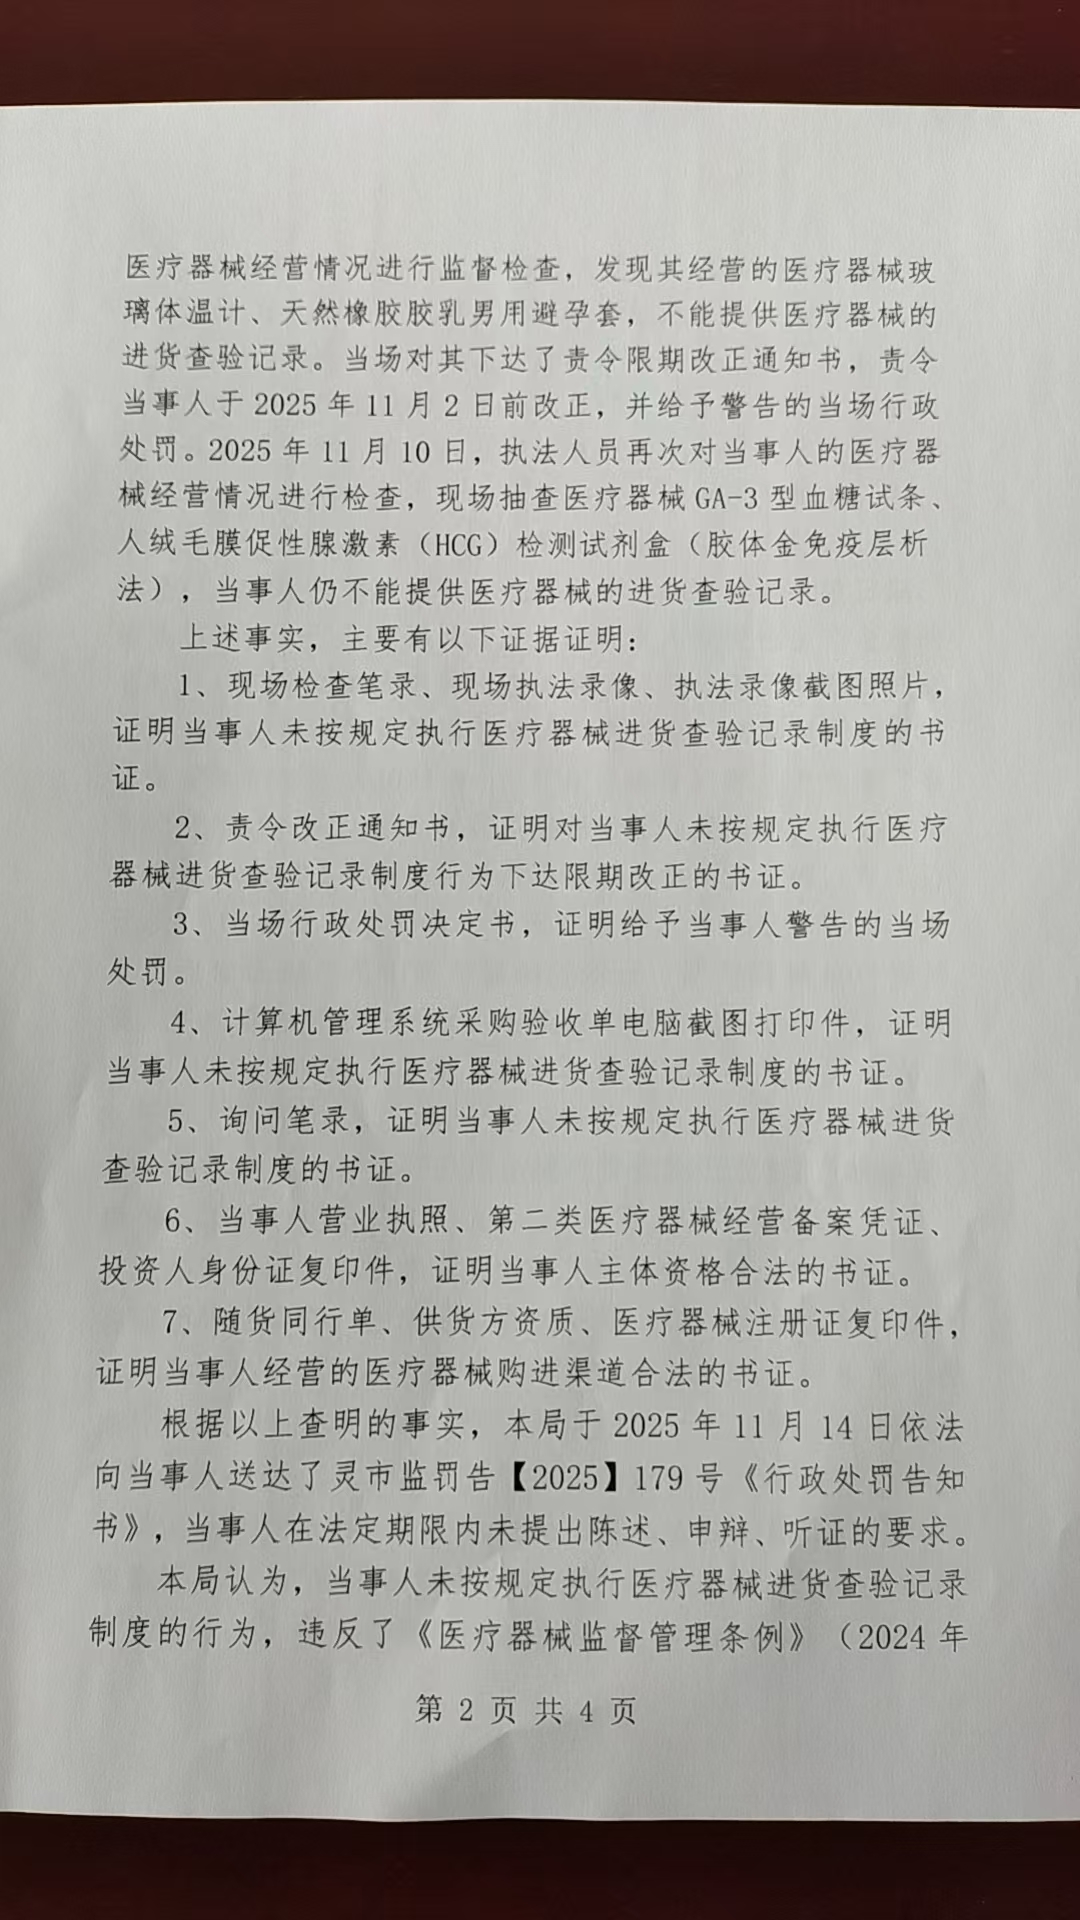 医疗器械经营情况进行监督检查，发现其经营的医疗器械玻
璃体温计、天然橡胶胶乳男用避孕套，不能提供医疗器械的
进货查验记录。当场对其下达了责令限期改正通知书，责令
当事人于 2025 年 11 月 2 日前改正，并给予警告的当场行政
处罚。2025 年 11 月 10 日，执法人员再次对当事人的医疗器
械经营情况进行检查，现场抽查医疗器械 GA-3 型血糖试条、
人绒毛膜促性腺激素（HCG）检测试剂盒（胶体金免疫层析
法），当事人仍不能提供医疗器械的进货查验记录。
上述事实，主要有以下证据证明：
1、现场检查笔录、现场执法录像、执法录像截图照片，
证明当事人未按规定执行医疗器械进货查验记录制度的书
证。
2、责令改正通知书，证明对当事人未按规定执行医疗
器械进货查验记录制度行为下达限期改正的书证。
3、当场行政处罚决定书，证明给予当事人警告的当场
处罚。
4、计算机管理系统采购验收单电脑截图打印件，证明
当事人未按规定执行医疗器械进货查验记录制度的书证。
5、询问笔录，证明当事人未按规定执行医疗器械进货
查验记录制度的书证。
6、当事人营业执照、第二类医疗器械经营备案凭证、
投资人身份证复印件，证明当事人主体资格合法的书证。
7、随货同行单、供货方资质、医疗器械注册证复印件，
证明当事人经营的医疗器械购进渠道合法的书证。
根据以上查明的事实，本局于 2025 年 11 月 14 日依法
向当事人送达了灵市监罚告【2025】179 号《行政处罚告知
书》，当事人在法定期限内未提出陈述、申辩、听证的要求。
本局认为，当事人未按规定执行医疗器械进货查验记录
制度的行为，违反了《医疗器械监督管理条例》（2024 年
第 2 页 共 4 页